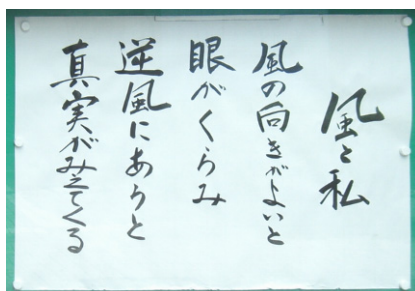 風と私
風の向きがよいと
眼がくらみ
逆風にあうと
真実がみえてくる